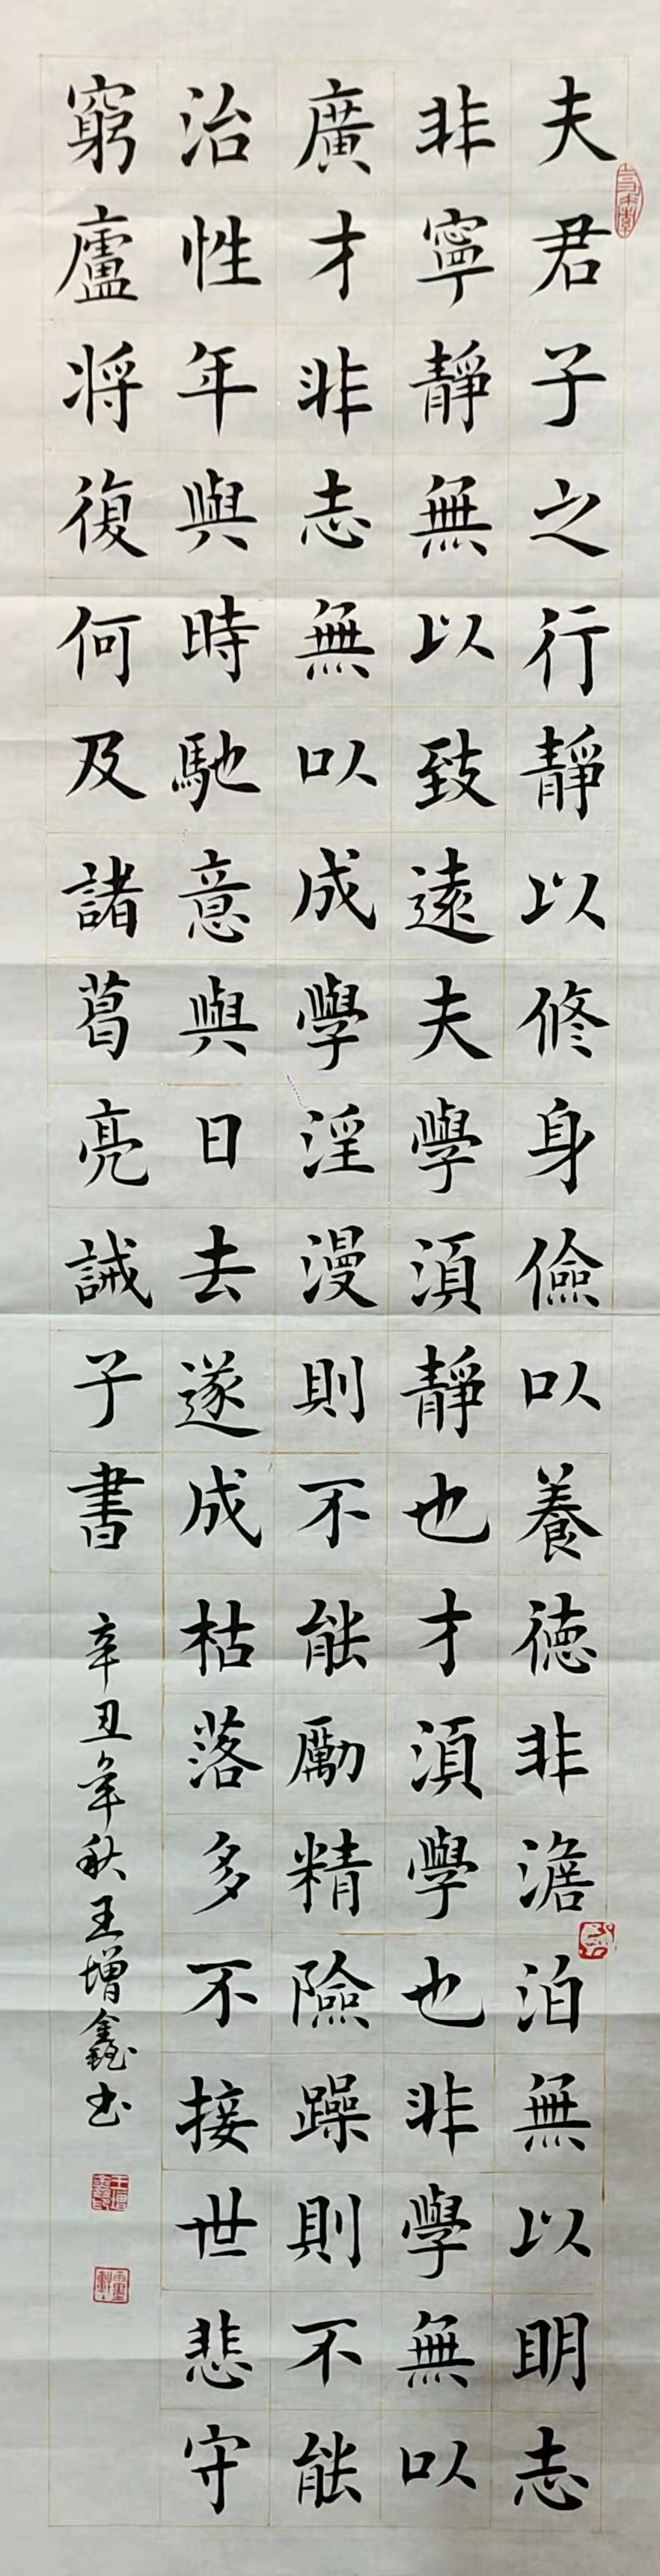 夫君子之行靜以修身儉以養德非澹泊無以明志
非寧靜無以致遠夫學須靜也才須學也非學無以
廣才非志無以成學淫漫則不能勵精險躁則不能
治性年與時馳意與日去遂成枯落多不接世悲守
窮廬將復何及諸葛亮誡子書
辛丑年秋王增鑫书